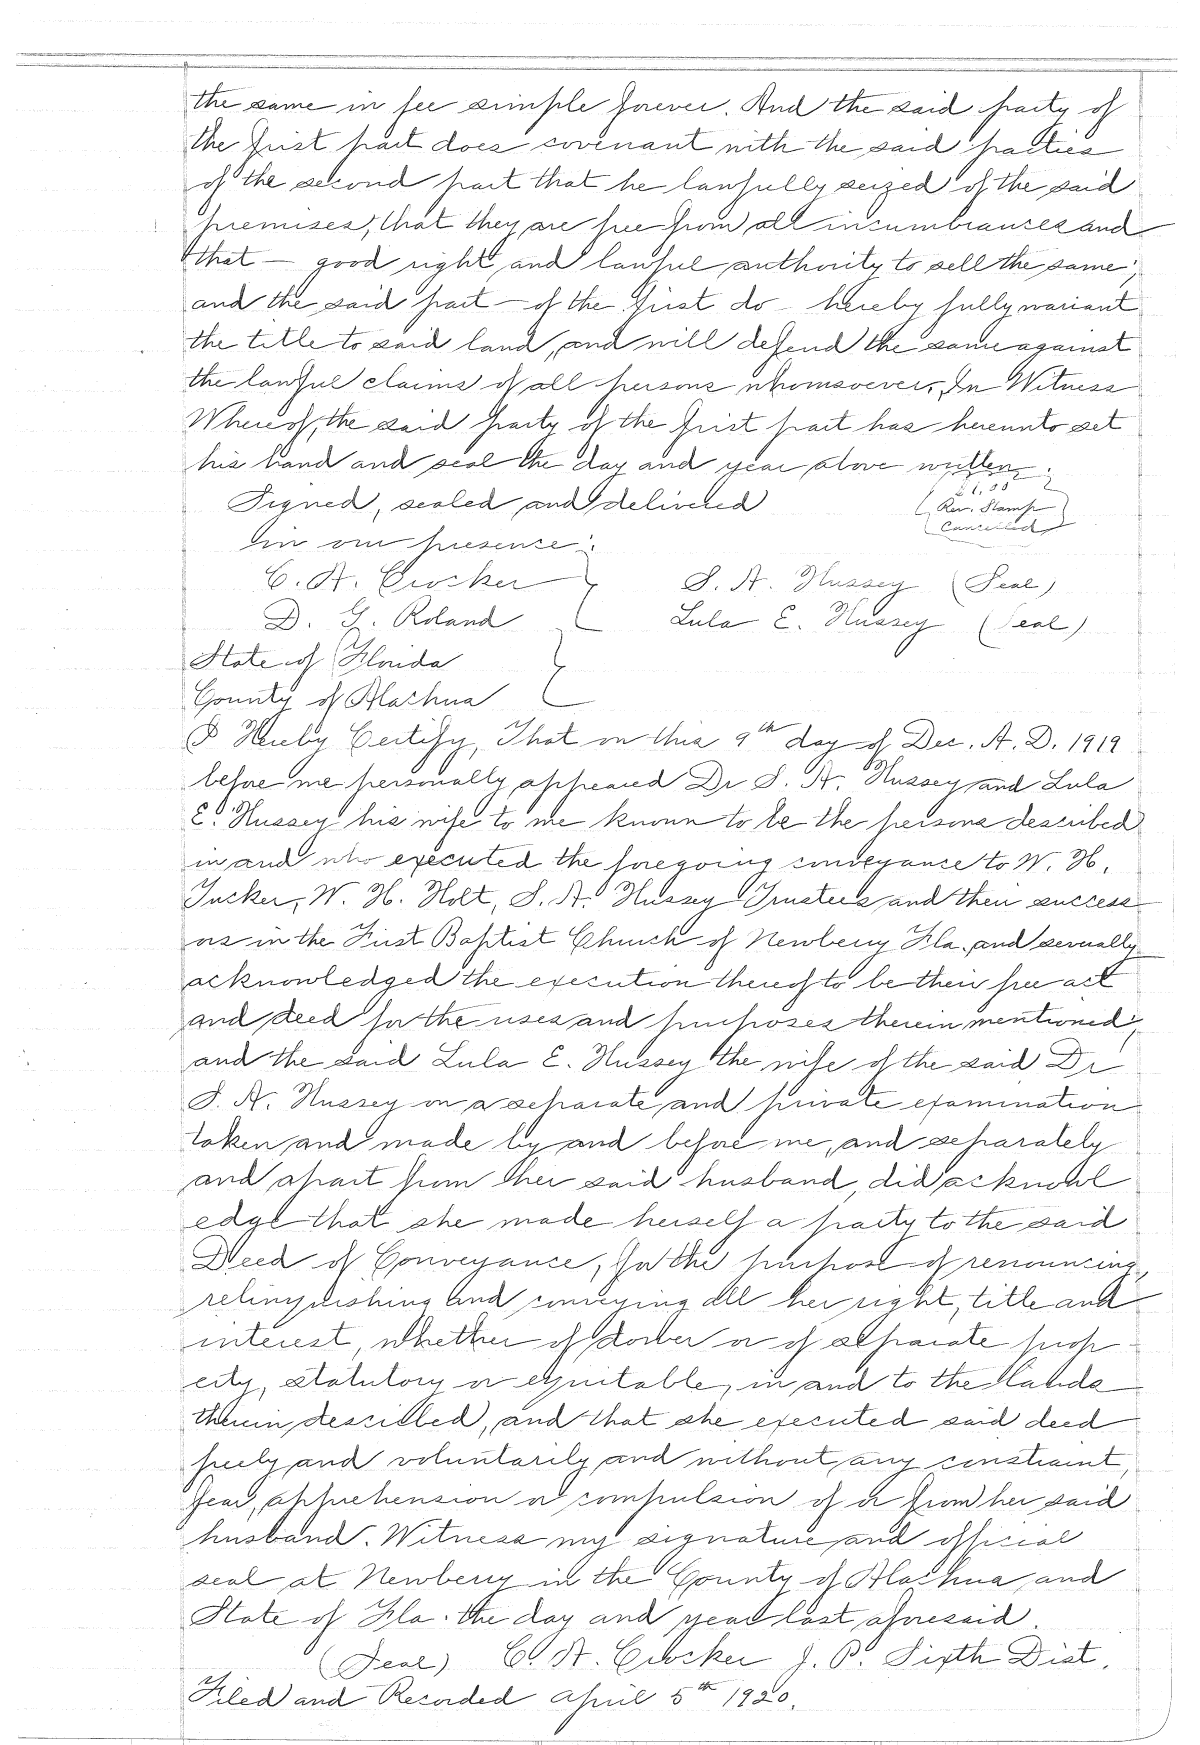 the same in fee simple forever. And the said party of
the first part does covenant with the said parties
of the second part that he lawfully seized of the said
premises, that they are free from all incumbrances and
that — good right and lawful authority to sell the same;
and the said part — of the first do — hereby fully warrant
the title to said land, and will defend the same against
the lawful claims of all persons whomsoever. In Witness
Whereof, the said party of the first part has hereunto set
his hand and seal the day and year above written.
Signed, sealed and delivered
Rev. Stamp
Cancelled
in our presence:
C. A. Crocker S. A. Hussey (Seal)
D. G. Roland Lula E. Hussey (Seal)
State of Florida
County of Alachua
I Hereby Certify, That on this 9th day of Dec. A. D. 1919
before me personally appeared Dr S. A. Hussey and Lula
E. Hussey his wife to me known to be the persons described
in and who executed the foregoing conveyance to W. H.
Tucker, W. H. Holt, S. A. Hussey Trustees and their success
ors in the First Baptist Church of Newberry Fla. and severally
acknowledged the execution thereof to be their free act
and deed for the uses and purposes therein mentioned;
and the said Lula E. Hussey the wife of the said Dr
S. A. Hussey on a separate and private examination
taken and made by and before me, and separately
and apart from her said husband, did acknowl
edge that she made herself a party to the said
Deed of Conveyance, for the purpose of renouncing,
relinquishing and conveying all her right, title and
interest, whether of dower or of separate prop
erty, statutory or equitable, in and to the lands
therein described, and that she executed said deed
freely and voluntarily and without any constraint,
fear, apprehension or compulsion of or from her said
husband. Witness my signature and official
seal at Newberry in the County of Alachua and
State of Fla. the day and year last aforesaid.
(Seal) C. A. Crocker J. P. Sixth Dist.
Filed and Recorded April 5th 1920.